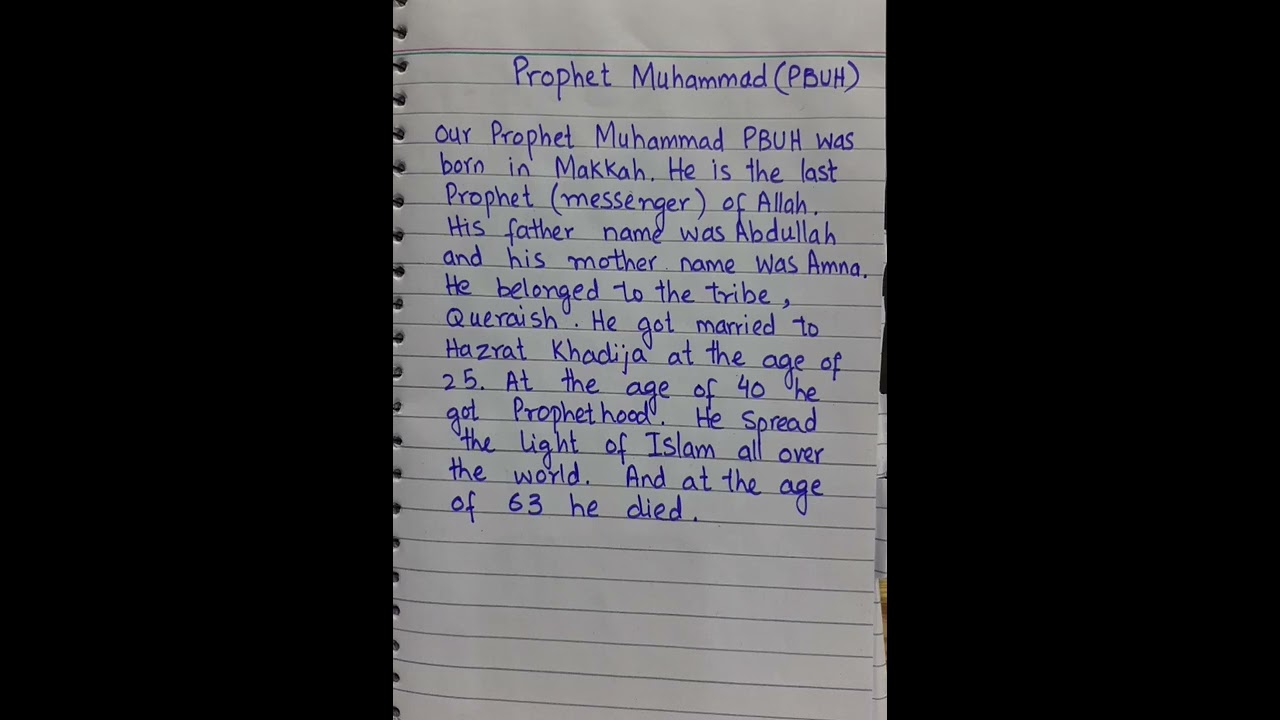 Prophet Muhammad (PBUH)
our Prophet Muhammad PBUH was
born in Makkah. He is the last
Prophet (messenger) of Allah.
His father name was Abdullah
and his mother name was Amna.
He belonged to the tribe,
Queraish. He got married to
Hazrat Khadija at the age of
25. At the age of 40 he
got Prophethood. He spread
the light of Islam all over
the world. And at the age
of 63 he died.